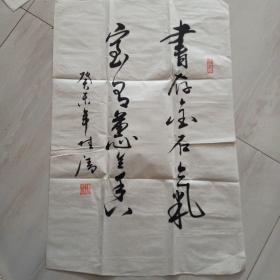 書存金石氣
室有蕙兰香
癸未年